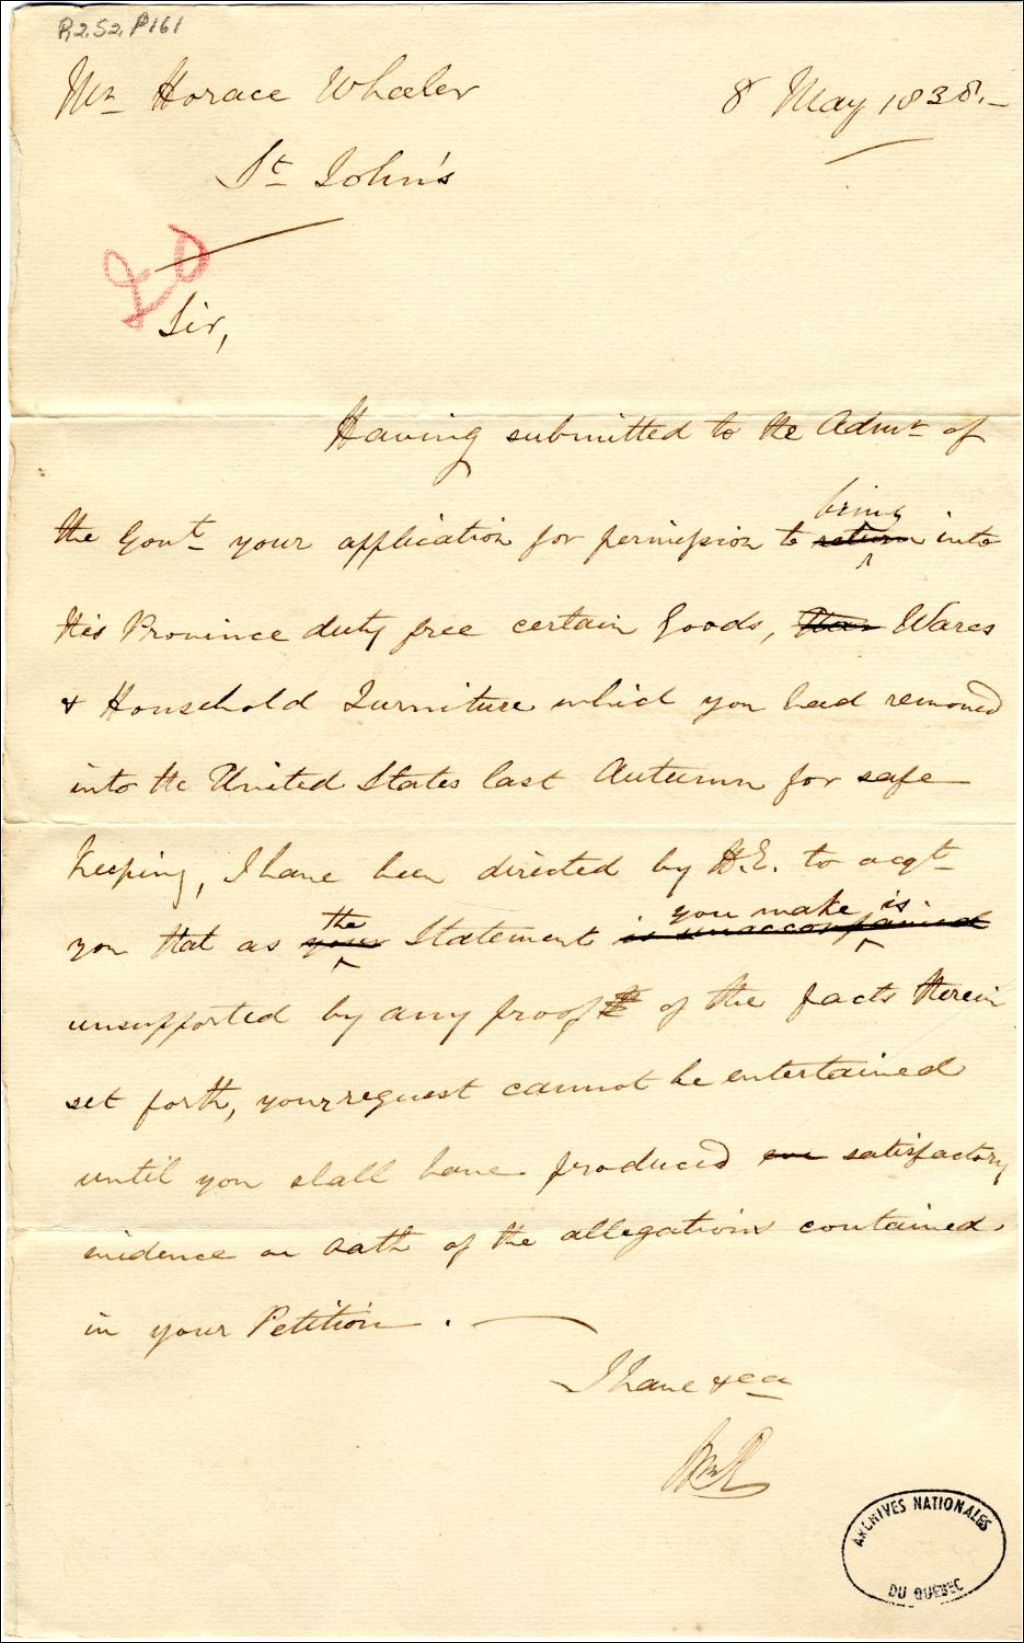 P,2,S2,P161
Mr. Horace Wheeler
8 May 1838.—
St. John's
20
Sir,
Having submitted to the Admr. of
bring
the Govt. your application for permission to return into
this Province duty free certain Goods, Wares
& Household Furniture which you had removed
into the United States last Autumn for safe
keeping, I have been directed by H.E. to acqt.
the you make is
you that as your Statement is unaccompanied
unsupported by any proof of the facts therein
set forth, your request cannot be entertained
until you shall have produced eve satisfactory
evidence on oath of the allegations contained
in your Petition. —
I have &ca
ARCHIVES NATIONALES
DU QUÉBEC